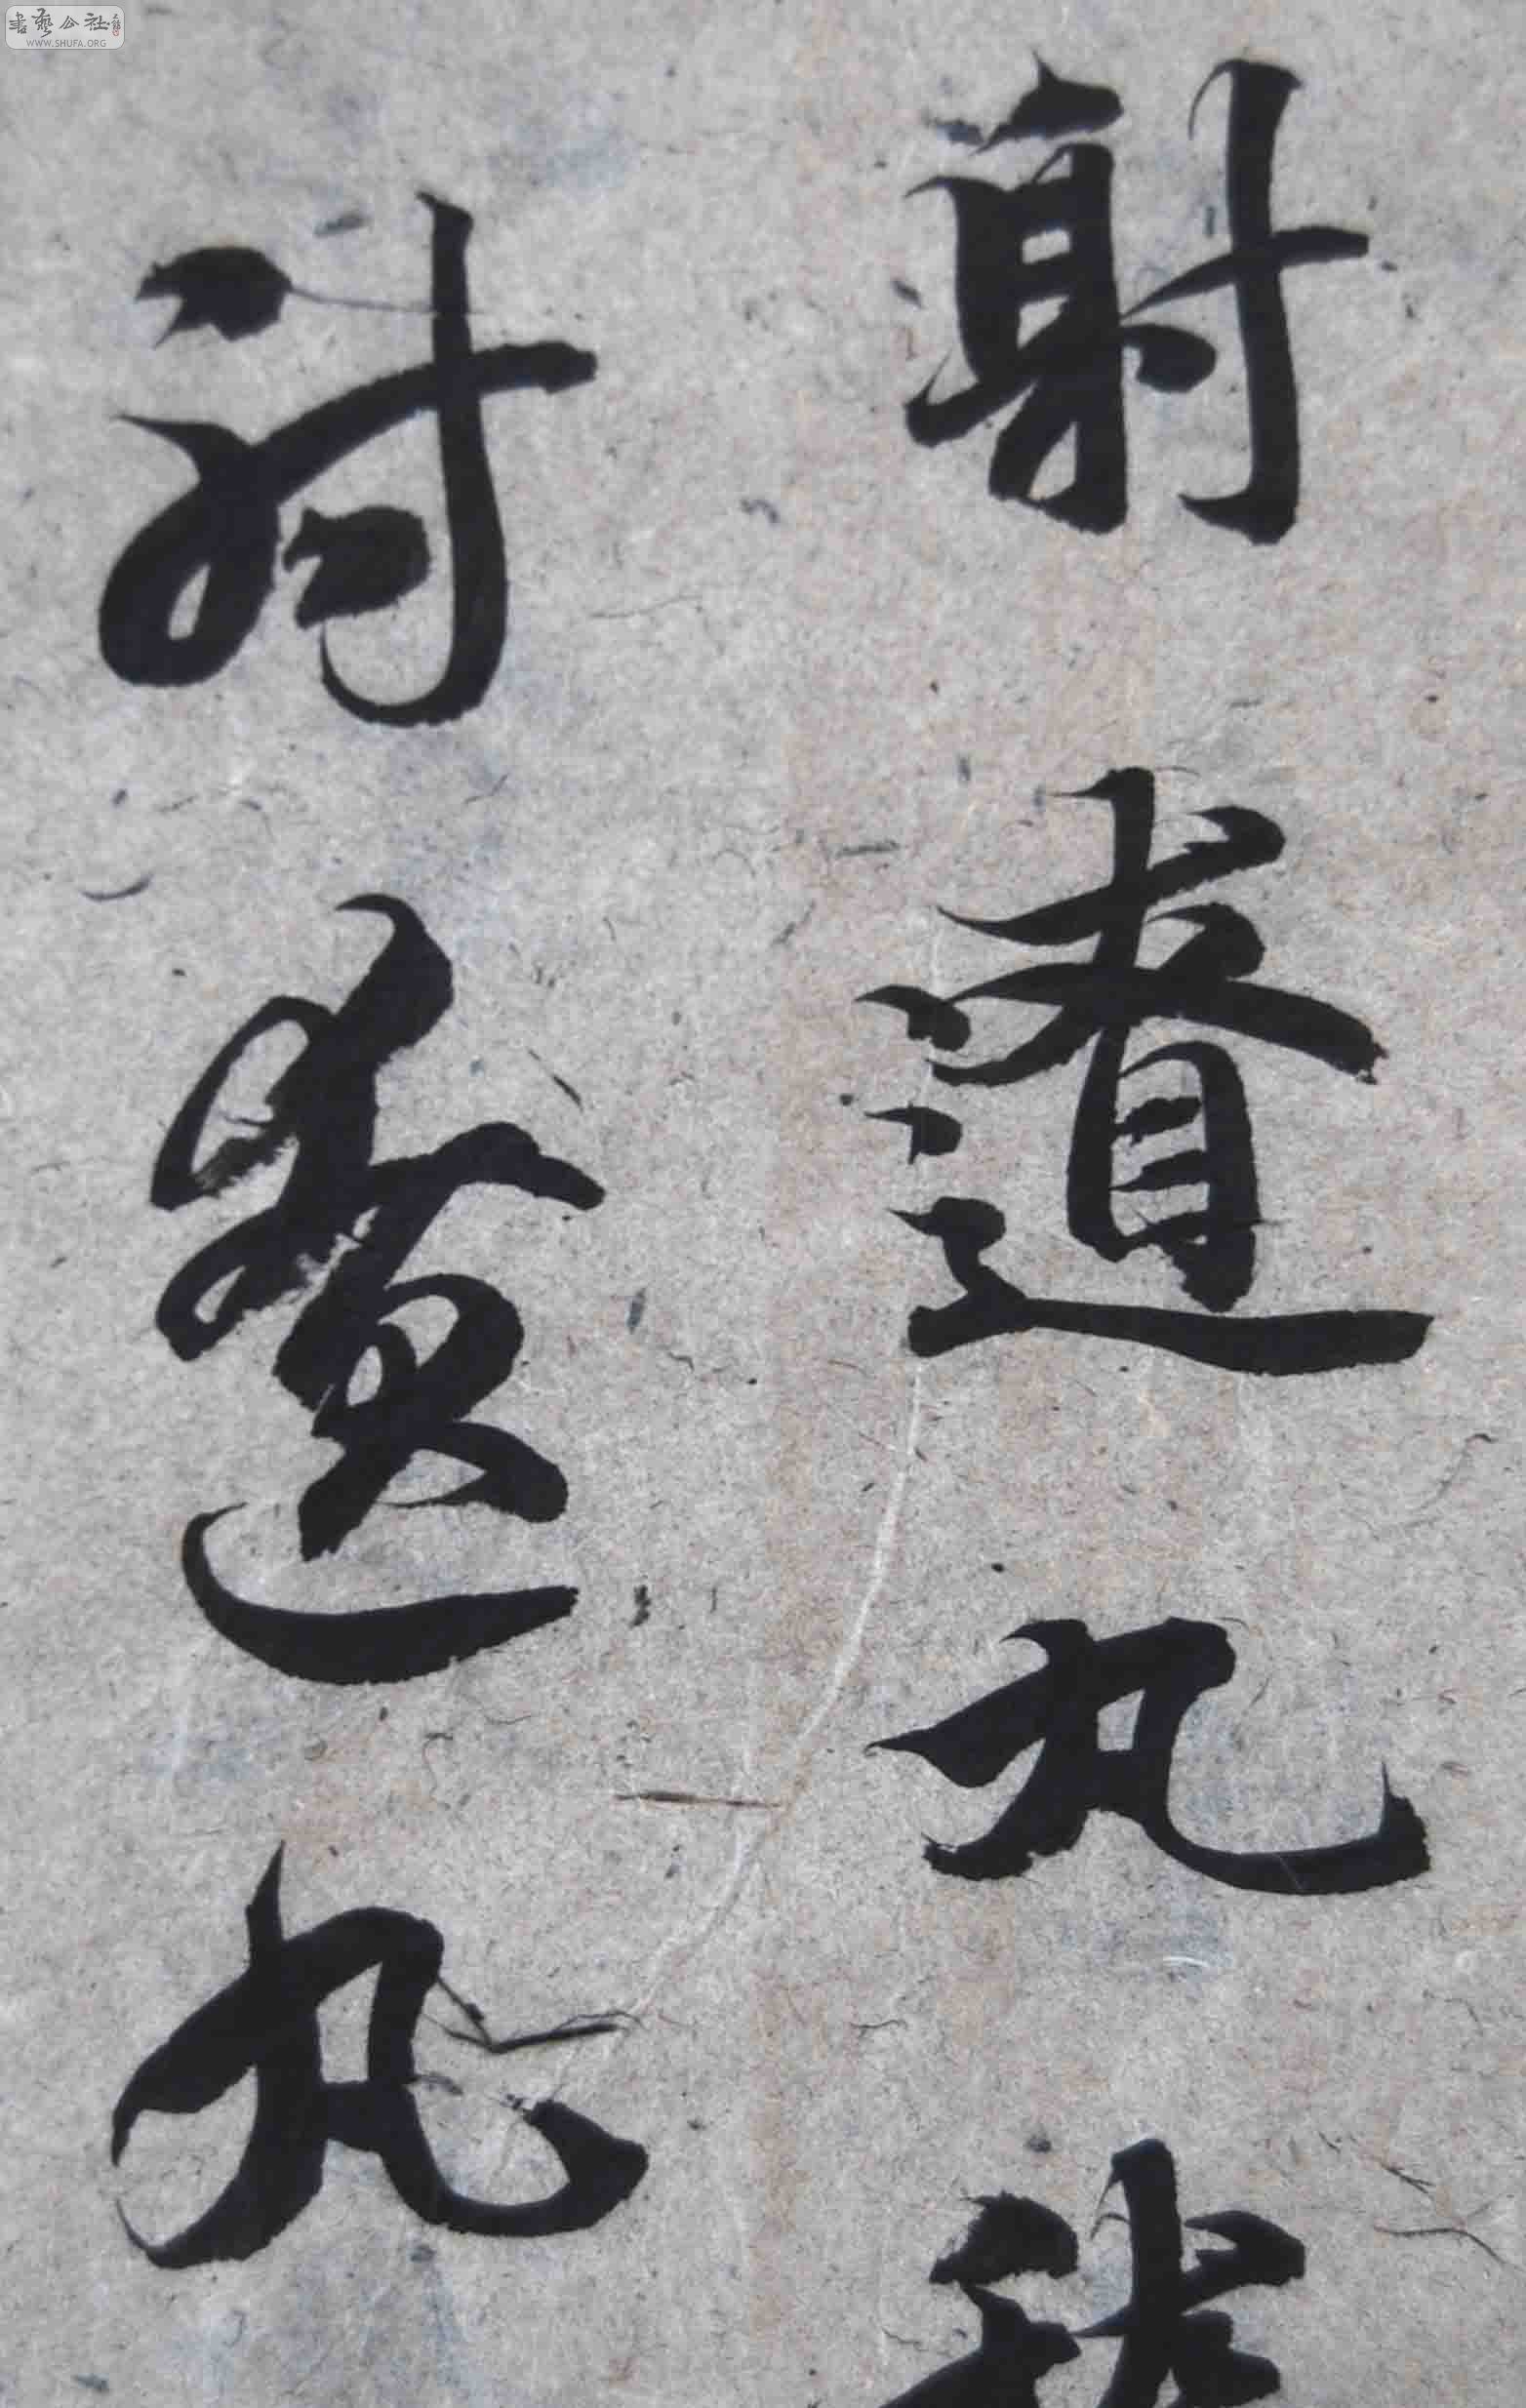 書藝公社
WWW.SHUFA.ORG
射遼丸
射遼丸